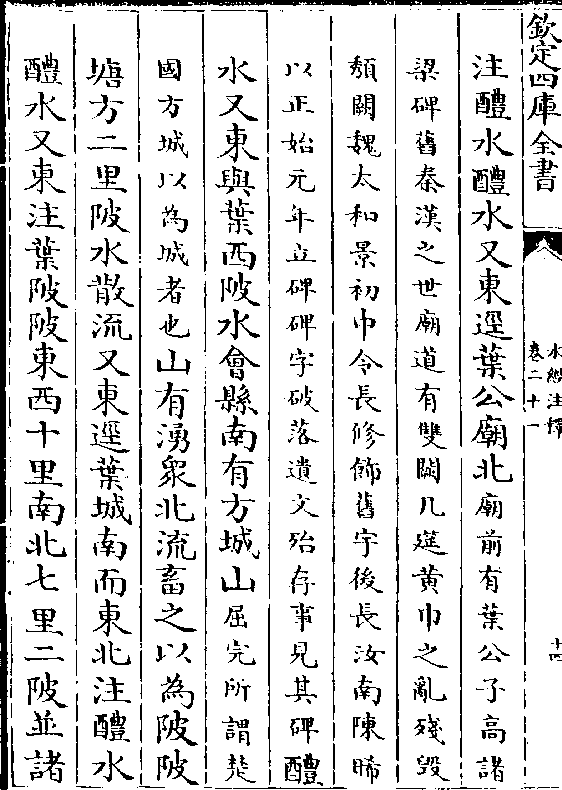 欽定四庫全書
水經注釋
卷二十一
十四
注醴水醴水又東逕葉公廟北廟前有葉公子高諸
梁碑舊秦漢之世廟道有雙闕几筵黃巾之亂殘毀
頽闕魏太和景初巾令長修飾舊宇後長汝南陳晞
以正始元年立碑碑字破落遺文殆存事見其碑醴
水又東與葉西陂水會縣南有方城山屈完所謂楚
國方城以為城者也山有湧泉北流畜之以為陂陂
塘方二里陂水散流又東逕葉城南而東北注醴水
醴水又東注葉陂陂東西十里南北七里二陂並諸